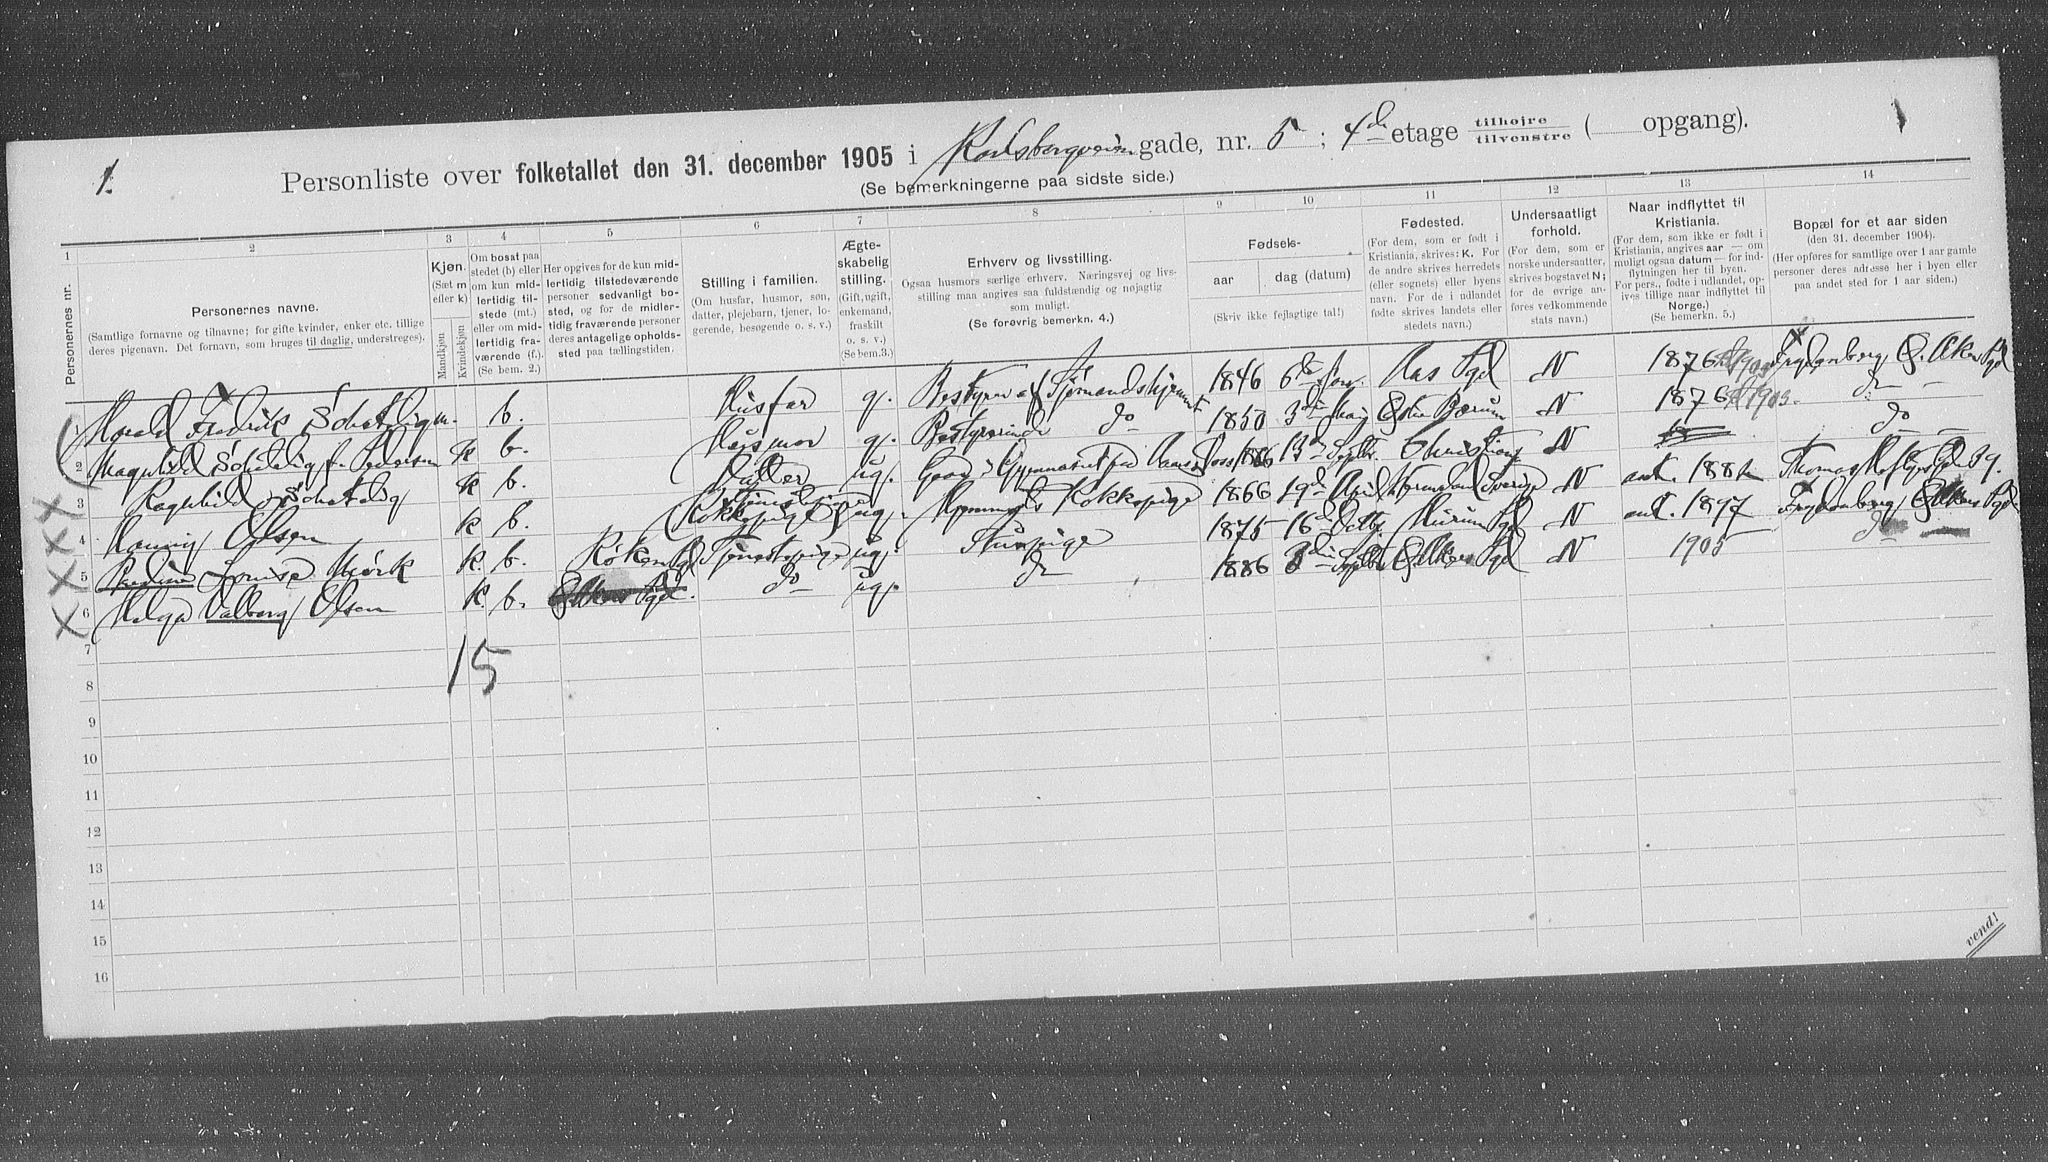 1.
Personliste over folketallet den 31. december 1905 i Karlsbergveien gade, nr. 5 ; 4de etage tilhøjre / tilvenstre ( opgang).
(Se bemerkningerne paa sidste side.)
1 2 3 4 5 6 7 8 9 10 11 12 13 14
Personernes nr.
Personernes navne.
(Samtlige fornavne og tilnavne; for gifte kvinder, enker etc. tillige deres pigenavn. Det fornavn, som bruges til daglig, understreges).
Kjøn. (Sæt m eller k) Mandkjøn Kvindekjøn
Om bosat paa stedet (b) eller om kun midlertidig tilstede (mt.) eller om midlertidig fraværende (f.) (Se bem. 2.)
Her opgives for de kun midlertidig tilstedeværende personer sedvanligt bosted, og for de midlertidig fraværende personer deres antagelige opholdssted paa tællingstiden.
Stilling i familien.
(Om husfar, husmor, søn, datter, plejebarn, tjener, logerende, besøgende o. s. v.)
Ægteskabelig stilling.
(Gift, ugift, enkemand, fraskilt o. s. v.) (Se bem. 3.)
Erhverv og livsstilling.
Ogsaa husmors særlige erhverv. Næringsvej og livsstilling maa angives saa fuldstændig og nøjagtig som muligt.
(Se forøvrig bemerkn. 4.)
Fødsels-
aar dag (datum)
(Skriv ikke fejlagtige tal!)
Fødested.
(For dem, som er født i Kristiania, skrives: K. For de andre skrives herredets (eller sognets) eller byens navn. For de i udlandet fødte skrives landets eller stedets navn.)
Undersaatligt forhold.
(For dem, som er norske undersaatter, skrives bogstavet N; for de øvrige anføres vedkommende stats navn.)
Naar indflyttet til Kristiania.
(For dem, som ikke er født i Kristiania, angives aar — om muligt ogsaa datum — for indflytningen her til byen. For pers., fødte i udlandet, opgives tillige naar indflyttet til Norge.)
(Se bemerkn. 5.)
Bopæl for et aar siden
(den 31. december 1904).
(Her opføres for samtlige over 1 aar gamle personer deres adresse her i byen eller paa andet sted for 1 aar siden.)
1 Harald Fredrik Schatvig m. b. Husfar g. Bestyrer af Sjømandshjemmet 1846 6te Jan. Aas Pgd N 1876 1905 Frydenberg Ø. Aker Pgd
2 Magnhild Schatvig f. Pedersen k b. Husmor g. Bestyrerinde do 1850 3die Maj Østre Bærum N 1876 1905. do
3 Ragnhild Schatvig k b. Datter ug. Gaar i Gymnasiet 1886 13 Septbr. N do
4 Hanny Olsen k b. Kokkepige ug. Hjemmets Kokkepige 1866 19de April Sverige N ank. 1882
5 Pauline Lovise Mørk k. b. Røken Pgd Tjenestepige ug. Stuepige 1875 16de Octbr Hurum Pgd N ank. 1897 Frydenberg Ø Akers Pgd
6 Helga Valborg Olsen k. b. Ø Akers Pgd. do ug. do 1886 3die Septbr Ø Akers Pgd N 1905 do
15
7
8
9
10
11
12
13
14
15
16
vend!